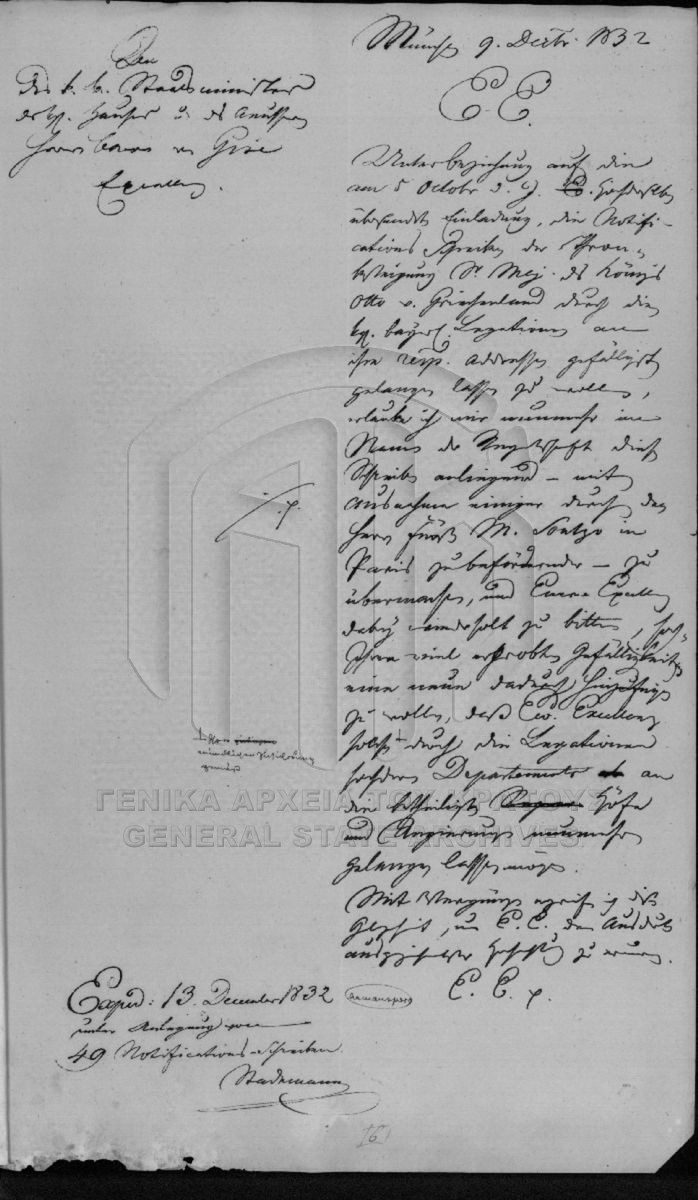 München 9. Decbr. 1832
An
des k. b. Staatsministers
des kgl. Hauses u. des Aeussern
Herrn Baron von Gise
Excellenz.
E. E.
Unter Beziehung auf die
am 5 Octobr d. J. E. Hochdieselben
übersendete Einladung, die Notifi-
cations Schreiben der Thron-
besteigung Sr Maj. des Königs
Otto v. Griechenland durch die
kgl. bayer. Legationen an
ihre resp. Addressen gefälligst
gelangen lassen zu wollen,
erlaube ich mir nunmehr im
Namen der Regentschaft diese
Schreiben anliegend – mit
Ausnahme einiger durch den
Herrn Fürst M. Soutzo in
Paris zu befördernder – zu
übermachen, und Euere Excellenz
dabey wiederholt zu bitten,
Ihrer viel erprobten Gefälligkeit
eine neue dadurch hinzufügen
zu wollen, daß Ew. Excellenz
solche durch die Legationen
Departements an
die betheiligten Höfe
und Regierungen nunmehr
gelangen lassen mögen.
mündlichen Versicherung
gemäß
Mit Vergnügen ergreife ich die
Gelegenheit, um E. E. den Ausdruck
ausgezeichneter Hochachtung zu erneuern.
E. E. p.
Armansperg
Exped: 13. December 1832
unter Anlegung von
49 Notifications-Schreiben.
Stademann
16
ΓΕΝΙΚΑ ΑΡΧΕΙΑ ΤΟΥ ΚΡΑΤΟΥΣ
GENERAL STATE ARCHIVES